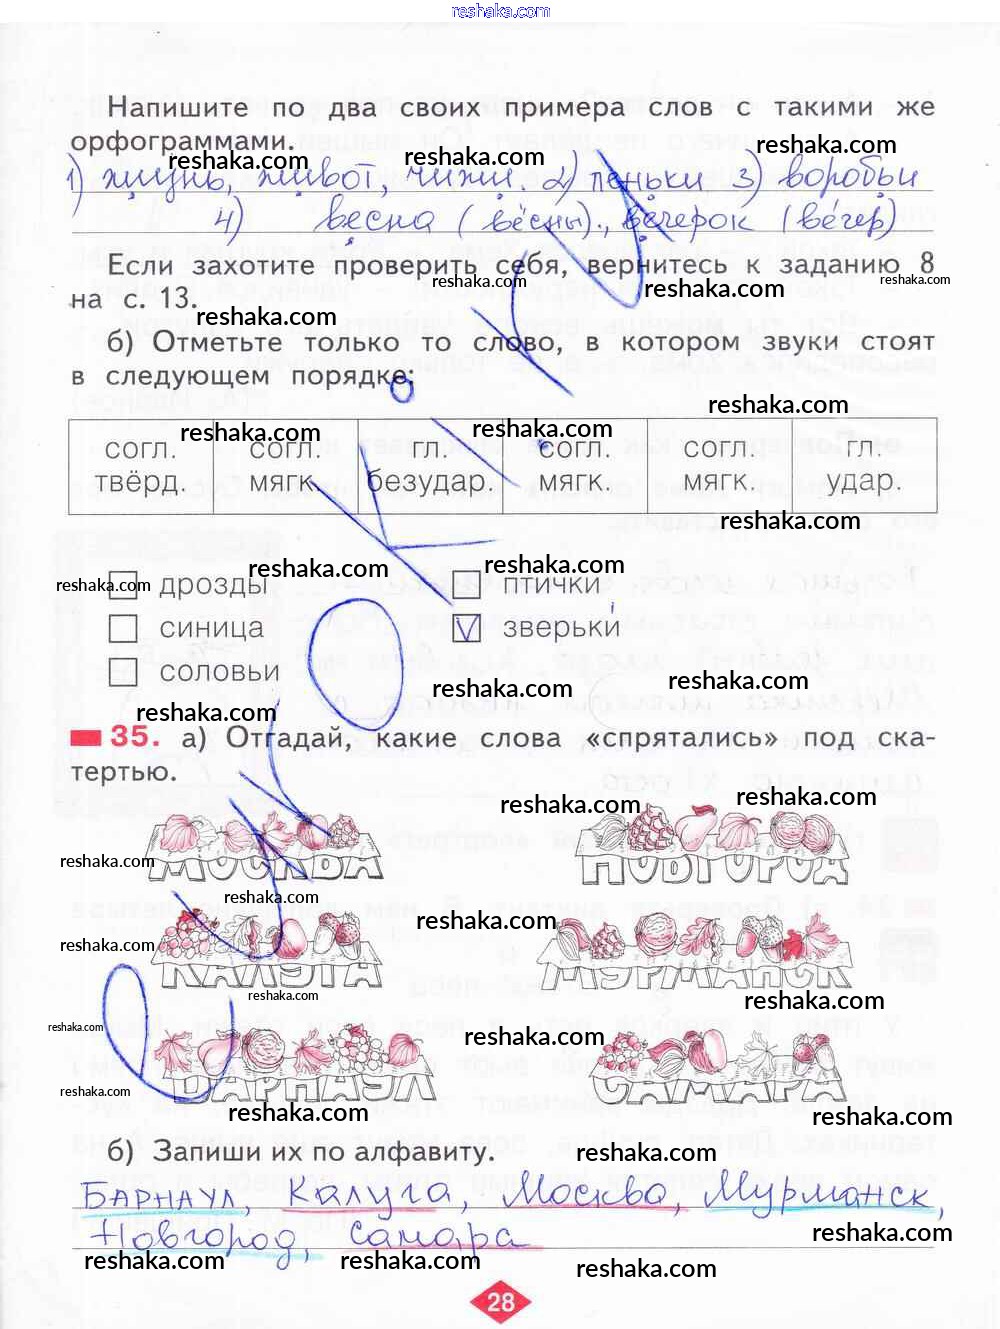 reshaka.com
Напишите по два своих примера слов с такими же
орфограммами.
reshaka.com
reshaka.com
reshaka.com
1) жизнь, живот, чижи. 2) пеньки 3) воробьи
4) весна (вёсны)., вечерок (ве́чер)
Если захотите проверить себя, вернитесь к заданию 8
reshaka.com
reshaka.com
reshaka.com
на с. 13.
reshaka.com
б) Отметьте только то слово, в котором звуки стоят
в следующем порядке:
reshaka.com
reshaka.com
reshaka.com
согл. твёрд.
согл. мягк.
гл. безудар.
согл. мягк.
согл. мягк.
гл. удар.
reshaka.com
reshaka.com
reshaka.com
reshaka.com
дрозды
птички
синица
зверьки
соловьи
reshaka.com
reshaka.com
reshaka.com
35. а) Отгадай, какие слова «спрятались» под ска-
тертью.
reshaka.com
reshaka.com
МОСКВА
НОВГОРОД
reshaka.com
reshaka.com
reshaka.com
КАЛУГА
МУРМАНСК
reshaka.com
reshaka.com
reshaka.com
БАРНАУЛ
САМАРА
reshaka.com
reshaka.com
reshaka.com
б) Запиши их по алфавиту.
reshaka.com
Барнаул, Калуга, Москва, Мурманск,
Новгород, Самара
reshaka.com
reshaka.com
reshaka.com
reshaka.com
28